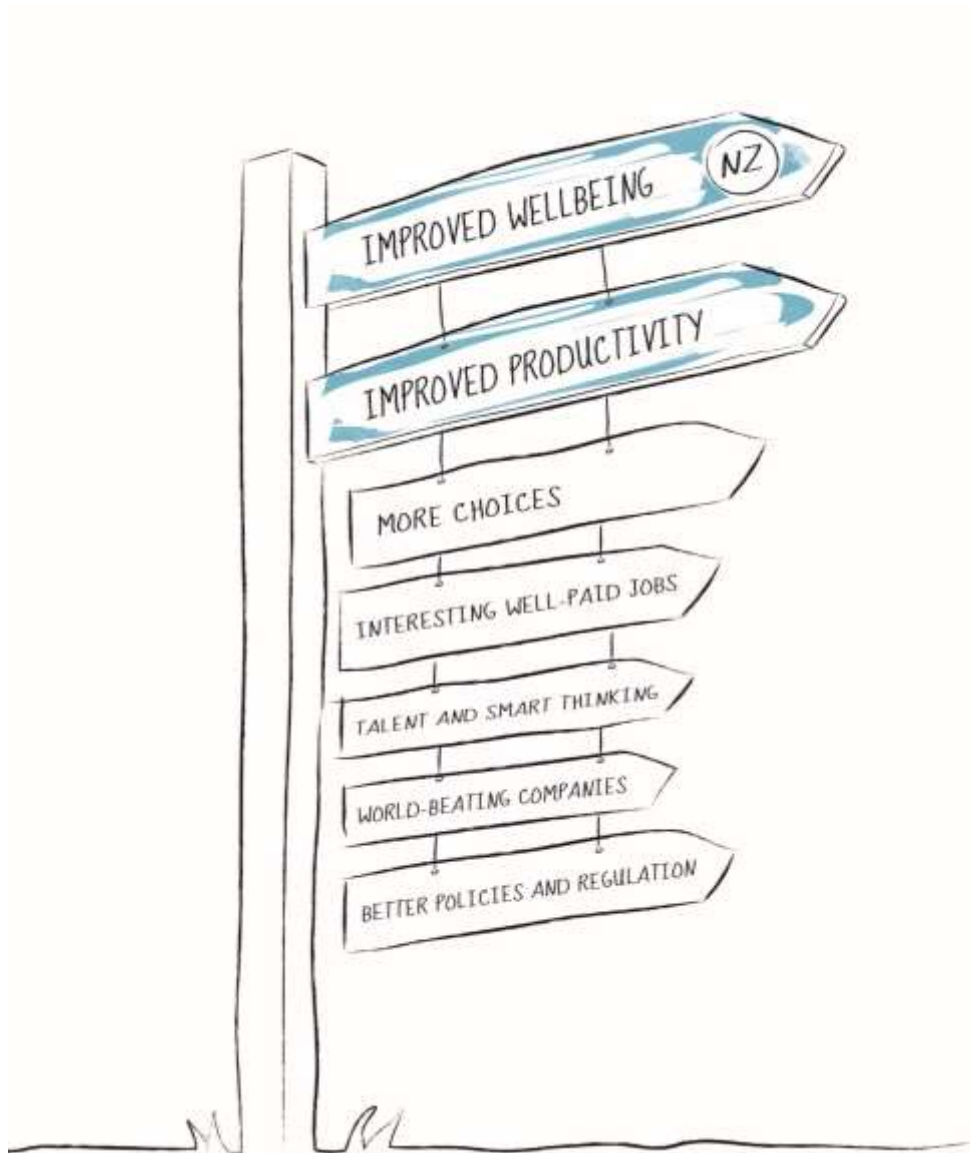 NZ
IMPROVED WELLBEING
IMPROVED PRODUCTIVITY
MORE CHOICES
INTERESTING WELL-PAID JOBS
TALENT AND SMART THINKING
WORLD-BEATING COMPANIES
BETTER POLICIES AND REGULATION